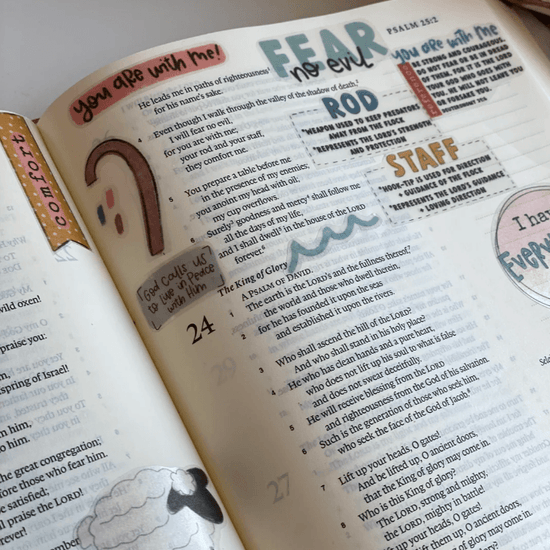 comfort
ild oxen!
praise you:
spring of Israel!
him,
him.
great congregation;
fore those who fear him.
satisfied;
praise the LORD!
rever!
PSALM 25:2
you are with me!
FEAR
no evil
you are with me
BE STRONG AND COURAGEOUS.
DO NOT FEAR OR BE IN DREAD
OF THEM, FOR IT IS THE LORD
YOUR GOD WHO GOES WITH
YOU. HE WILL NOT LEAVE YOU
OR FORSAKE YOU.
He leads me in paths of righteousness
for his name's sake.
4 Even though I walk through the valley of the shadow of death,
I will fear no evil,
for you are with me;
your rod and your staff,
they comfort me.
ROD
*WEAPON USED TO KEEP PREDATORS
AWAY FROM THE FLOCK
*REPRESENTS THE LORD'S STRENGTH
AND PROTECTION
STAFF
*HOOK-TIP IS USED FOR DIRECTION
+ GUIDANCE OF THE FLOCK
*REPRESENTS THE LORD'S GUIDANCE
+ LOVING DIRECTION
5 You prepare a table before me
in the presence of my enemies;
you anoint my head with oil;
my cup overflows.
6 Surely goodness and mercy shall follow me
all the days of my life,
and I shall dwell in the house of the LORD
forever.
God calls us
to live in Peace
with Him
I ha
Every
The King of Glory
24 A PSALM OF DAVID.
1 The earth is the LORD's and the fullness thereof,
the world and those who dwell therein,
2 for he has founded it upon the seas
and established it upon the rivers.
3 Who shall ascend the hill of the LORD?
And who shall stand in his holy place?
4 He who has clean hands and a pure heart,
who does not lift up his soul to what is false
and does not swear deceitfully.
5 He will receive blessing from the LORD
and righteousness from the God of his salvation.
6 Such is the generation of those who seek him,
who seek the face of the God of Jacob.
7 Lift up your heads, O gates!
And be lifted up, O ancient doors,
that the King of glory may come in.
8 Who is this King of glory?
The LORD, strong and mighty,
the LORD, mighty in battle!
up your heads, O gates!
them up, O ancient doors,
King of glory may come in.